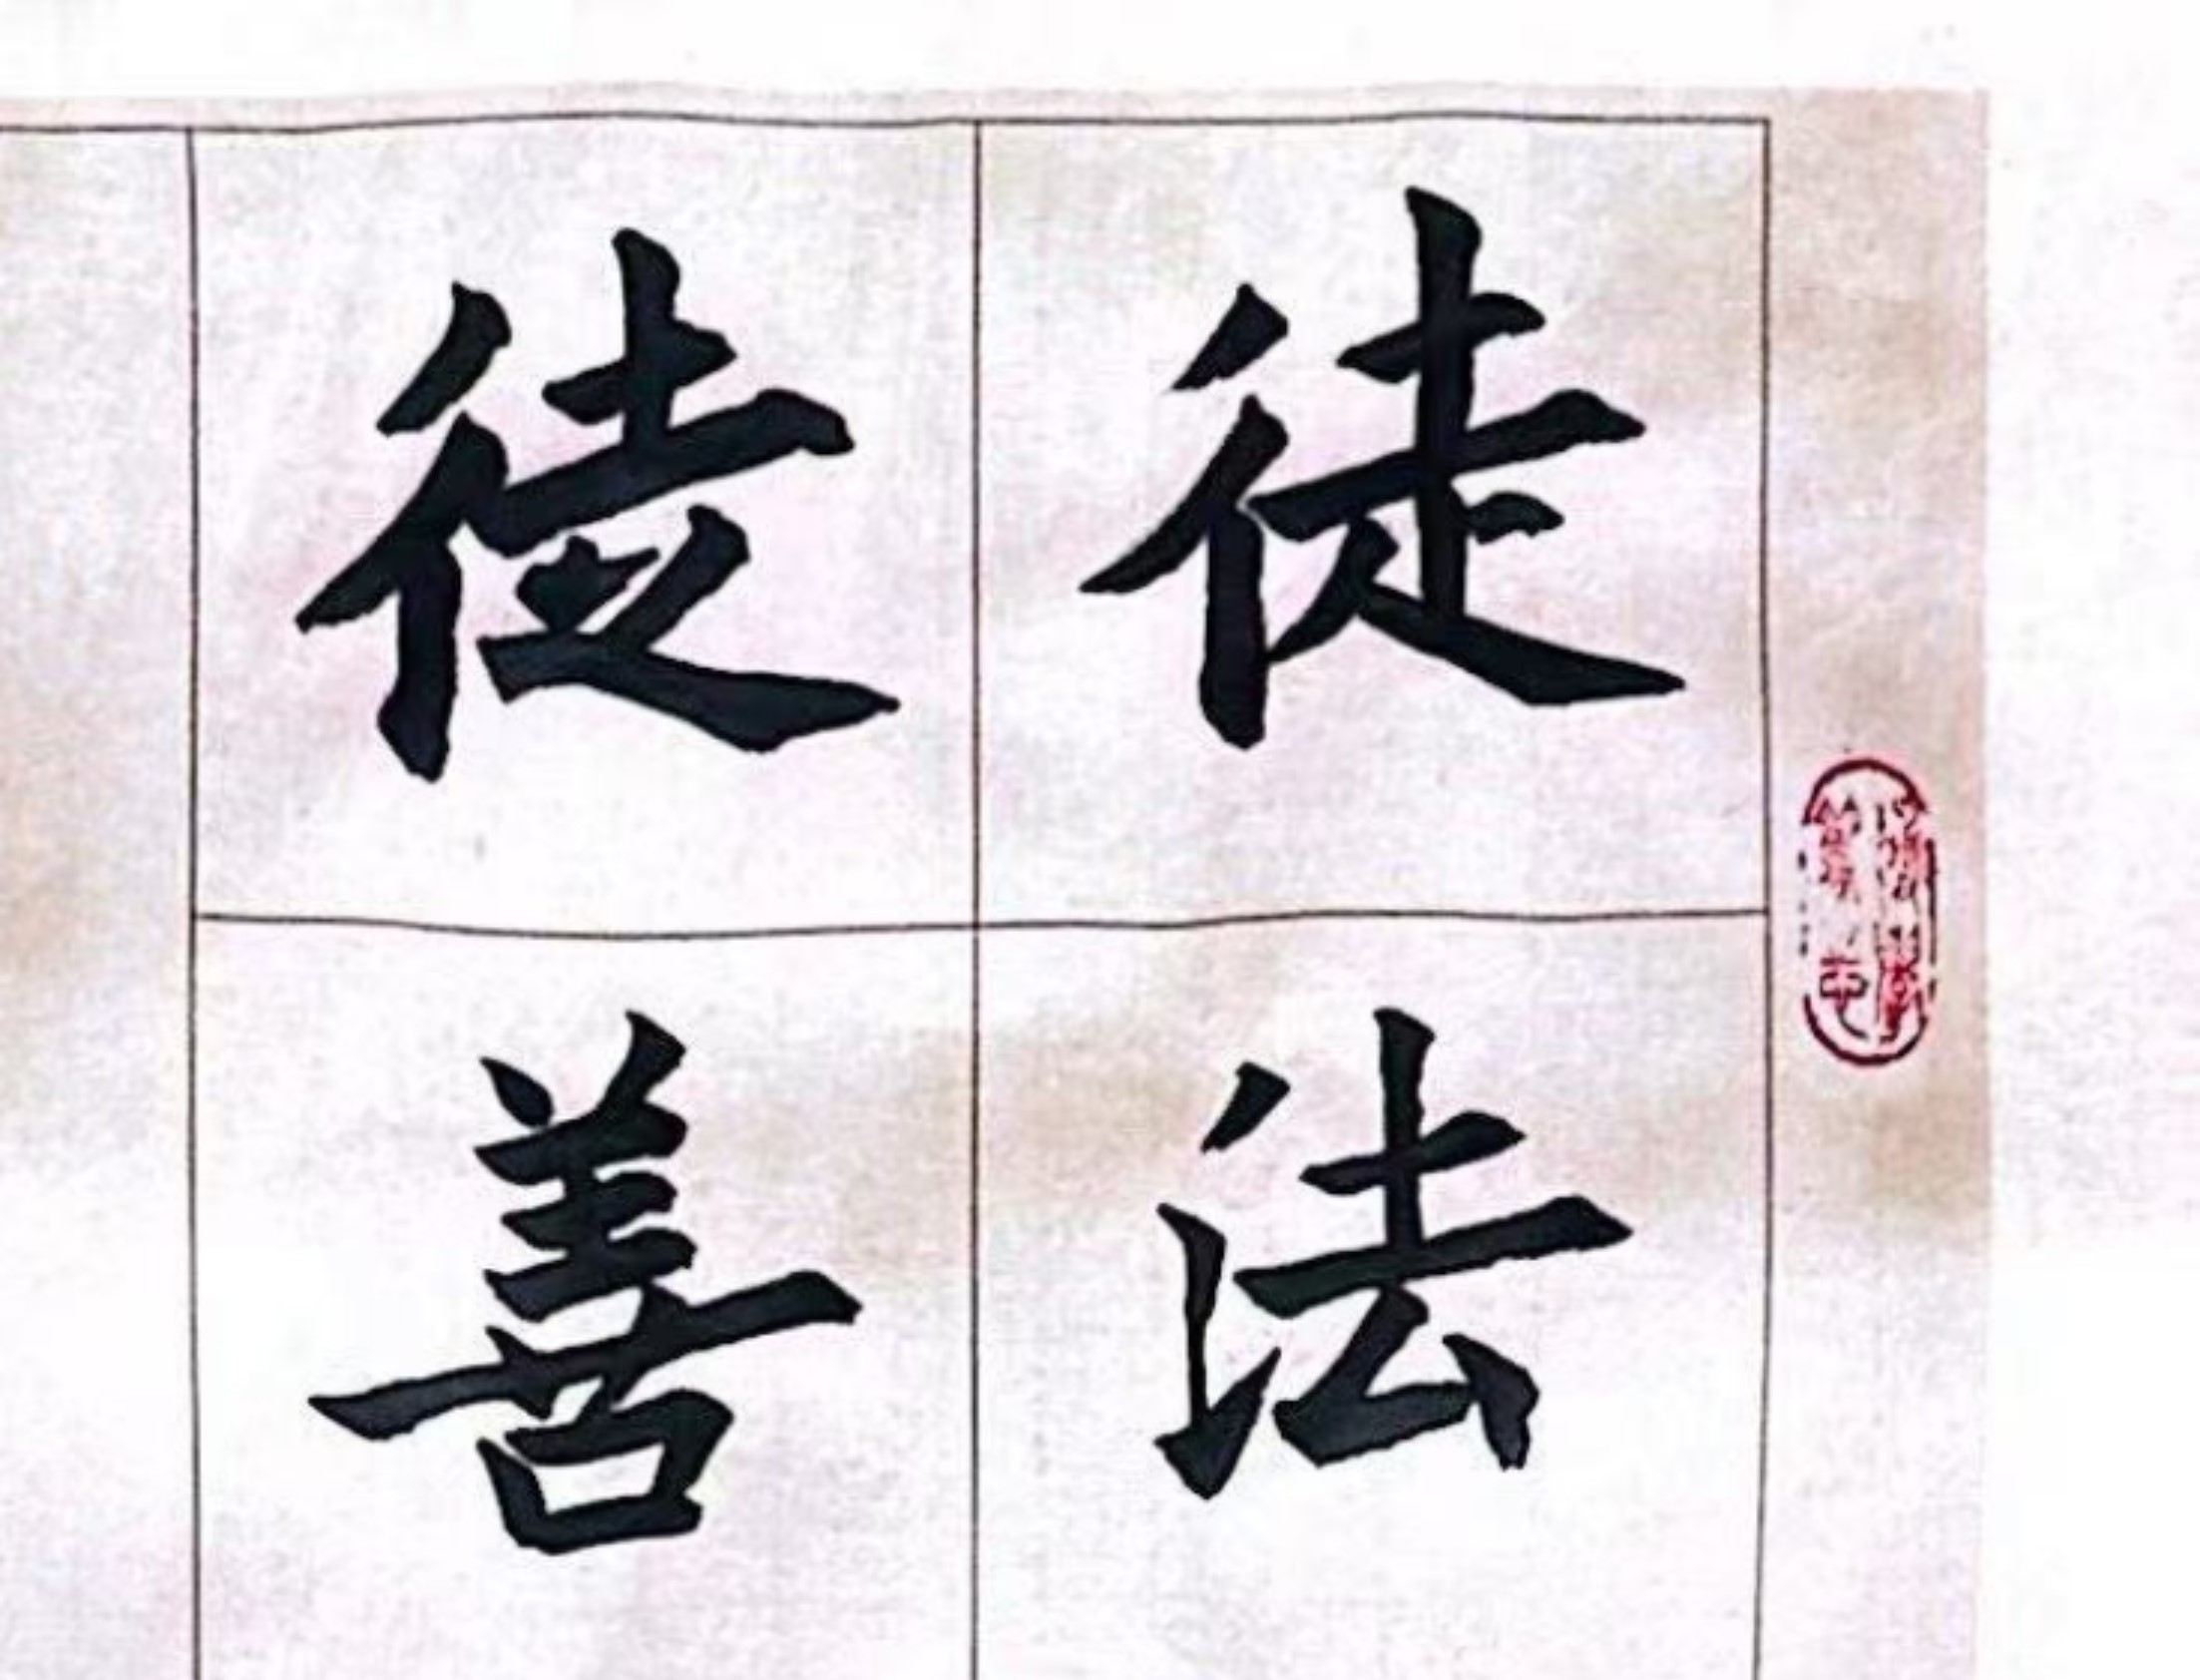 徒法
徒善